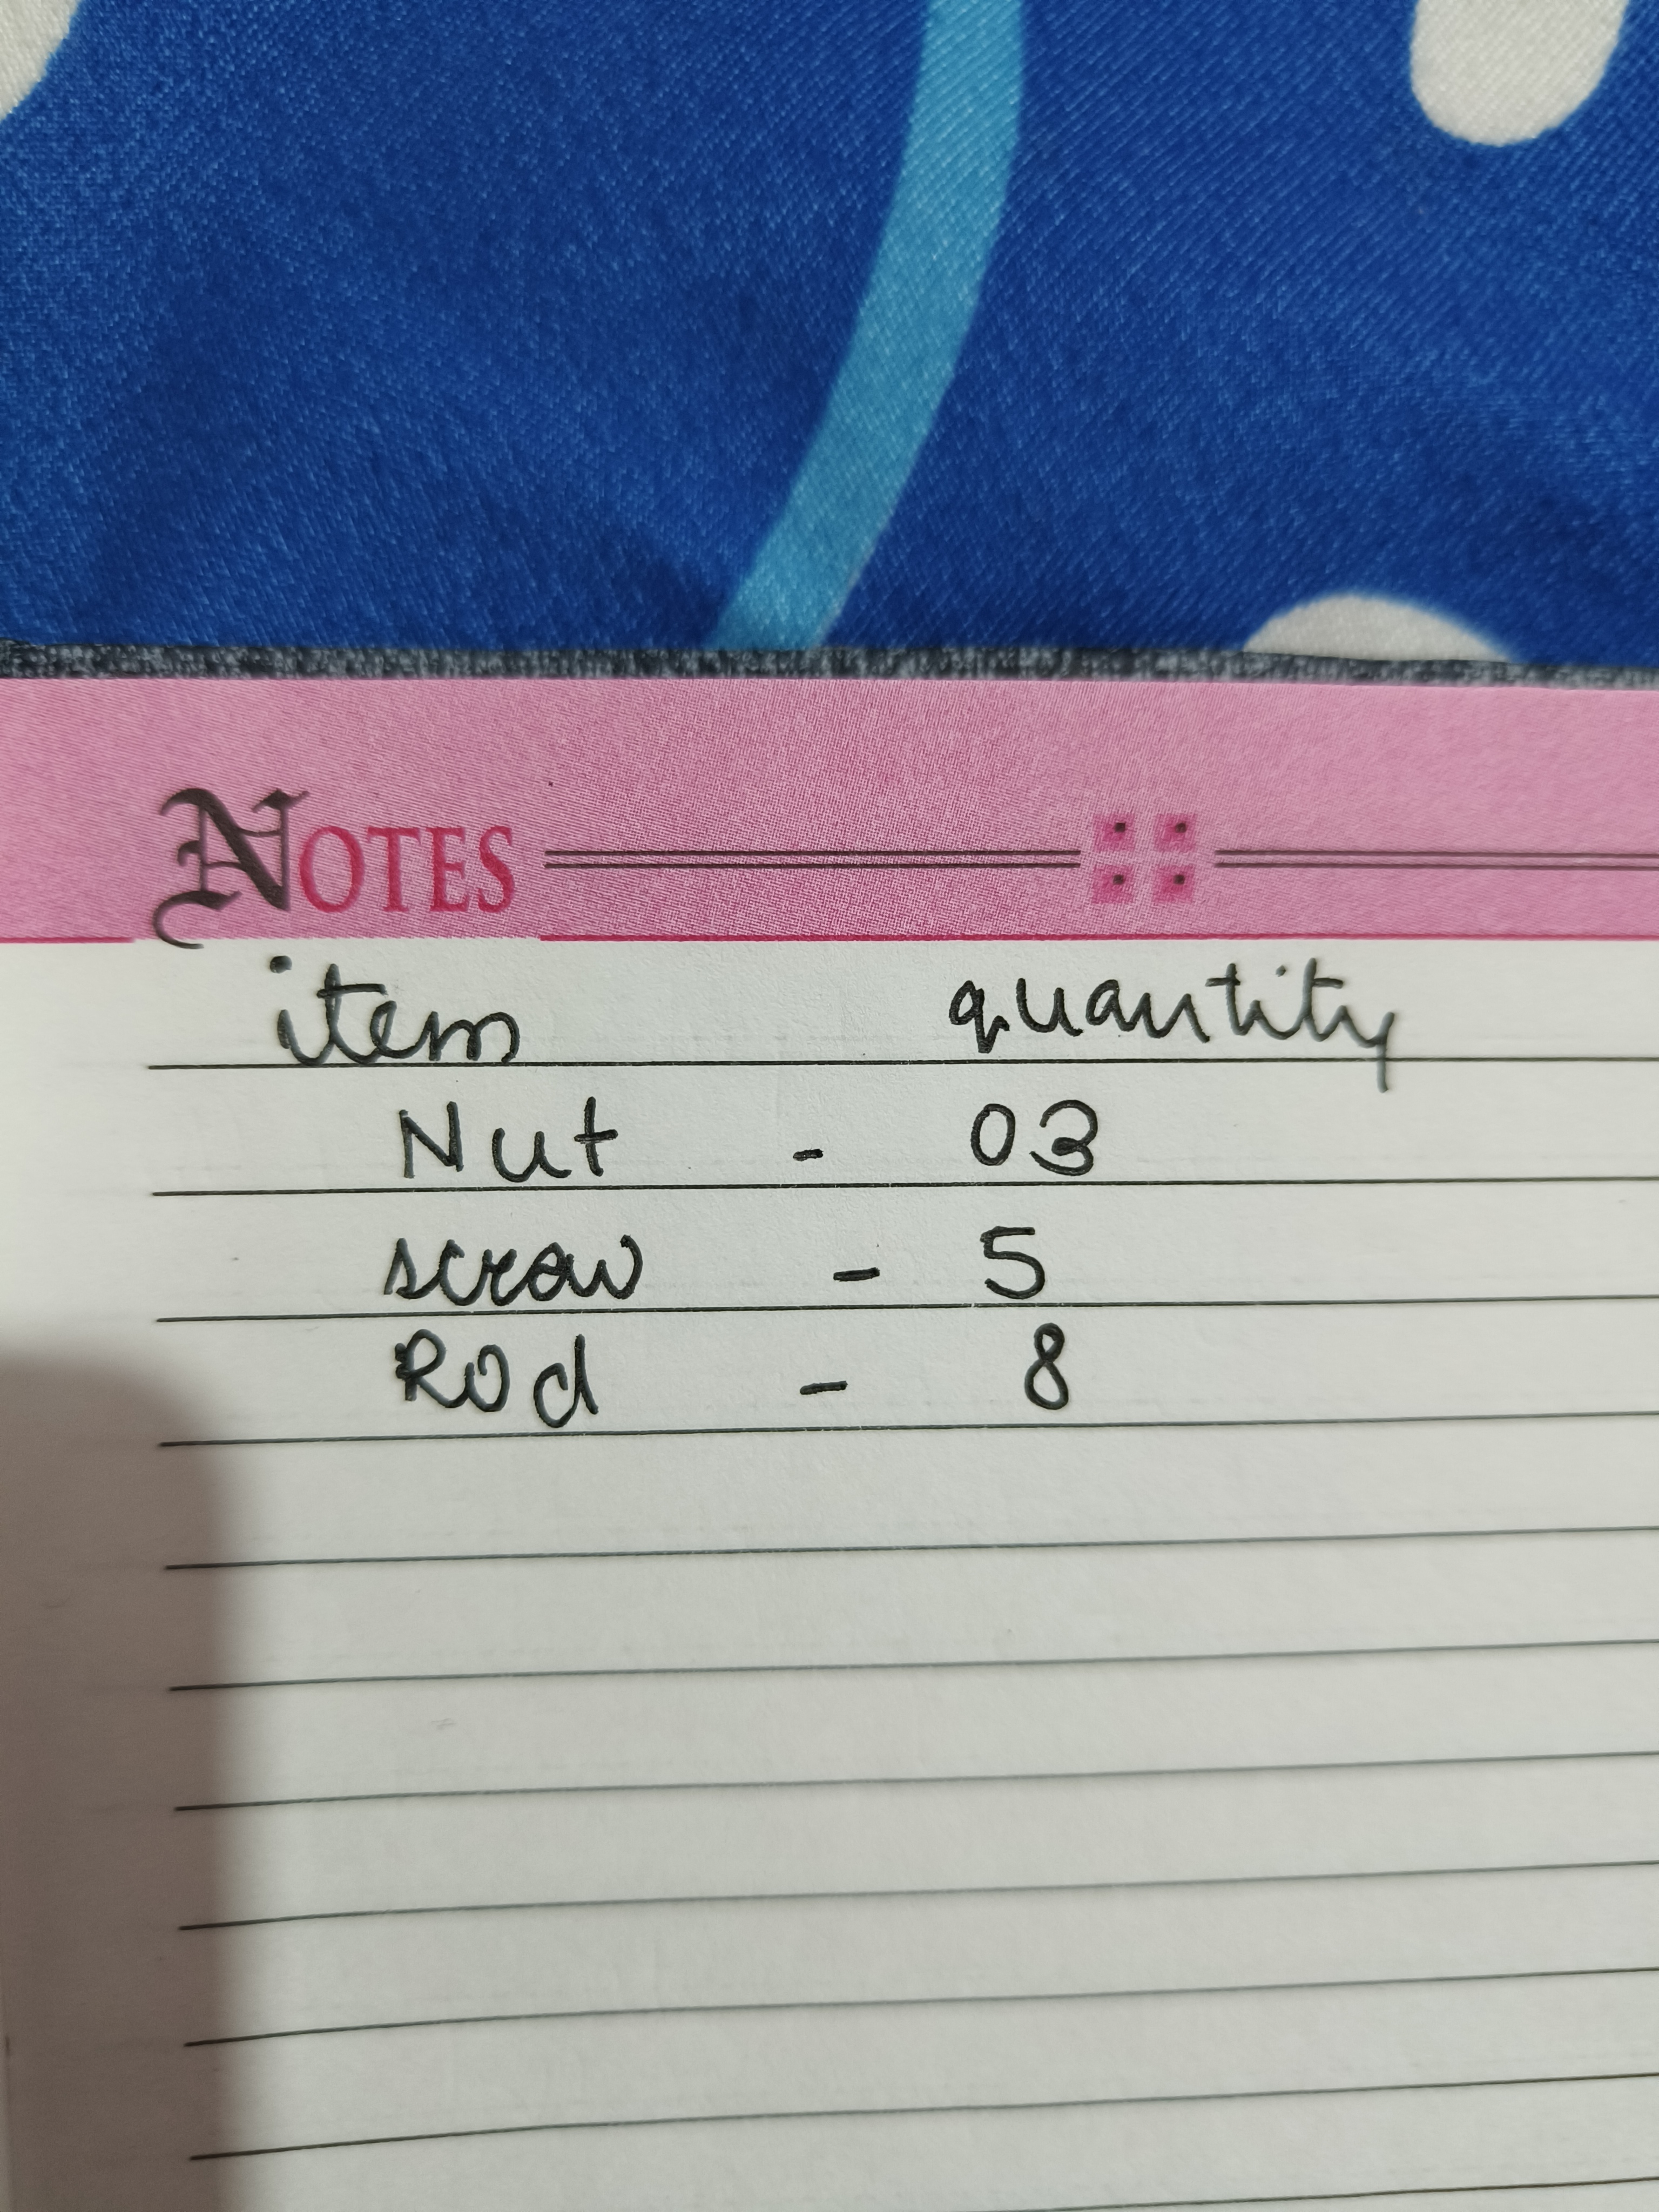 NOTES
item quantity
Nut - 03
screw - 5
Rod - 8